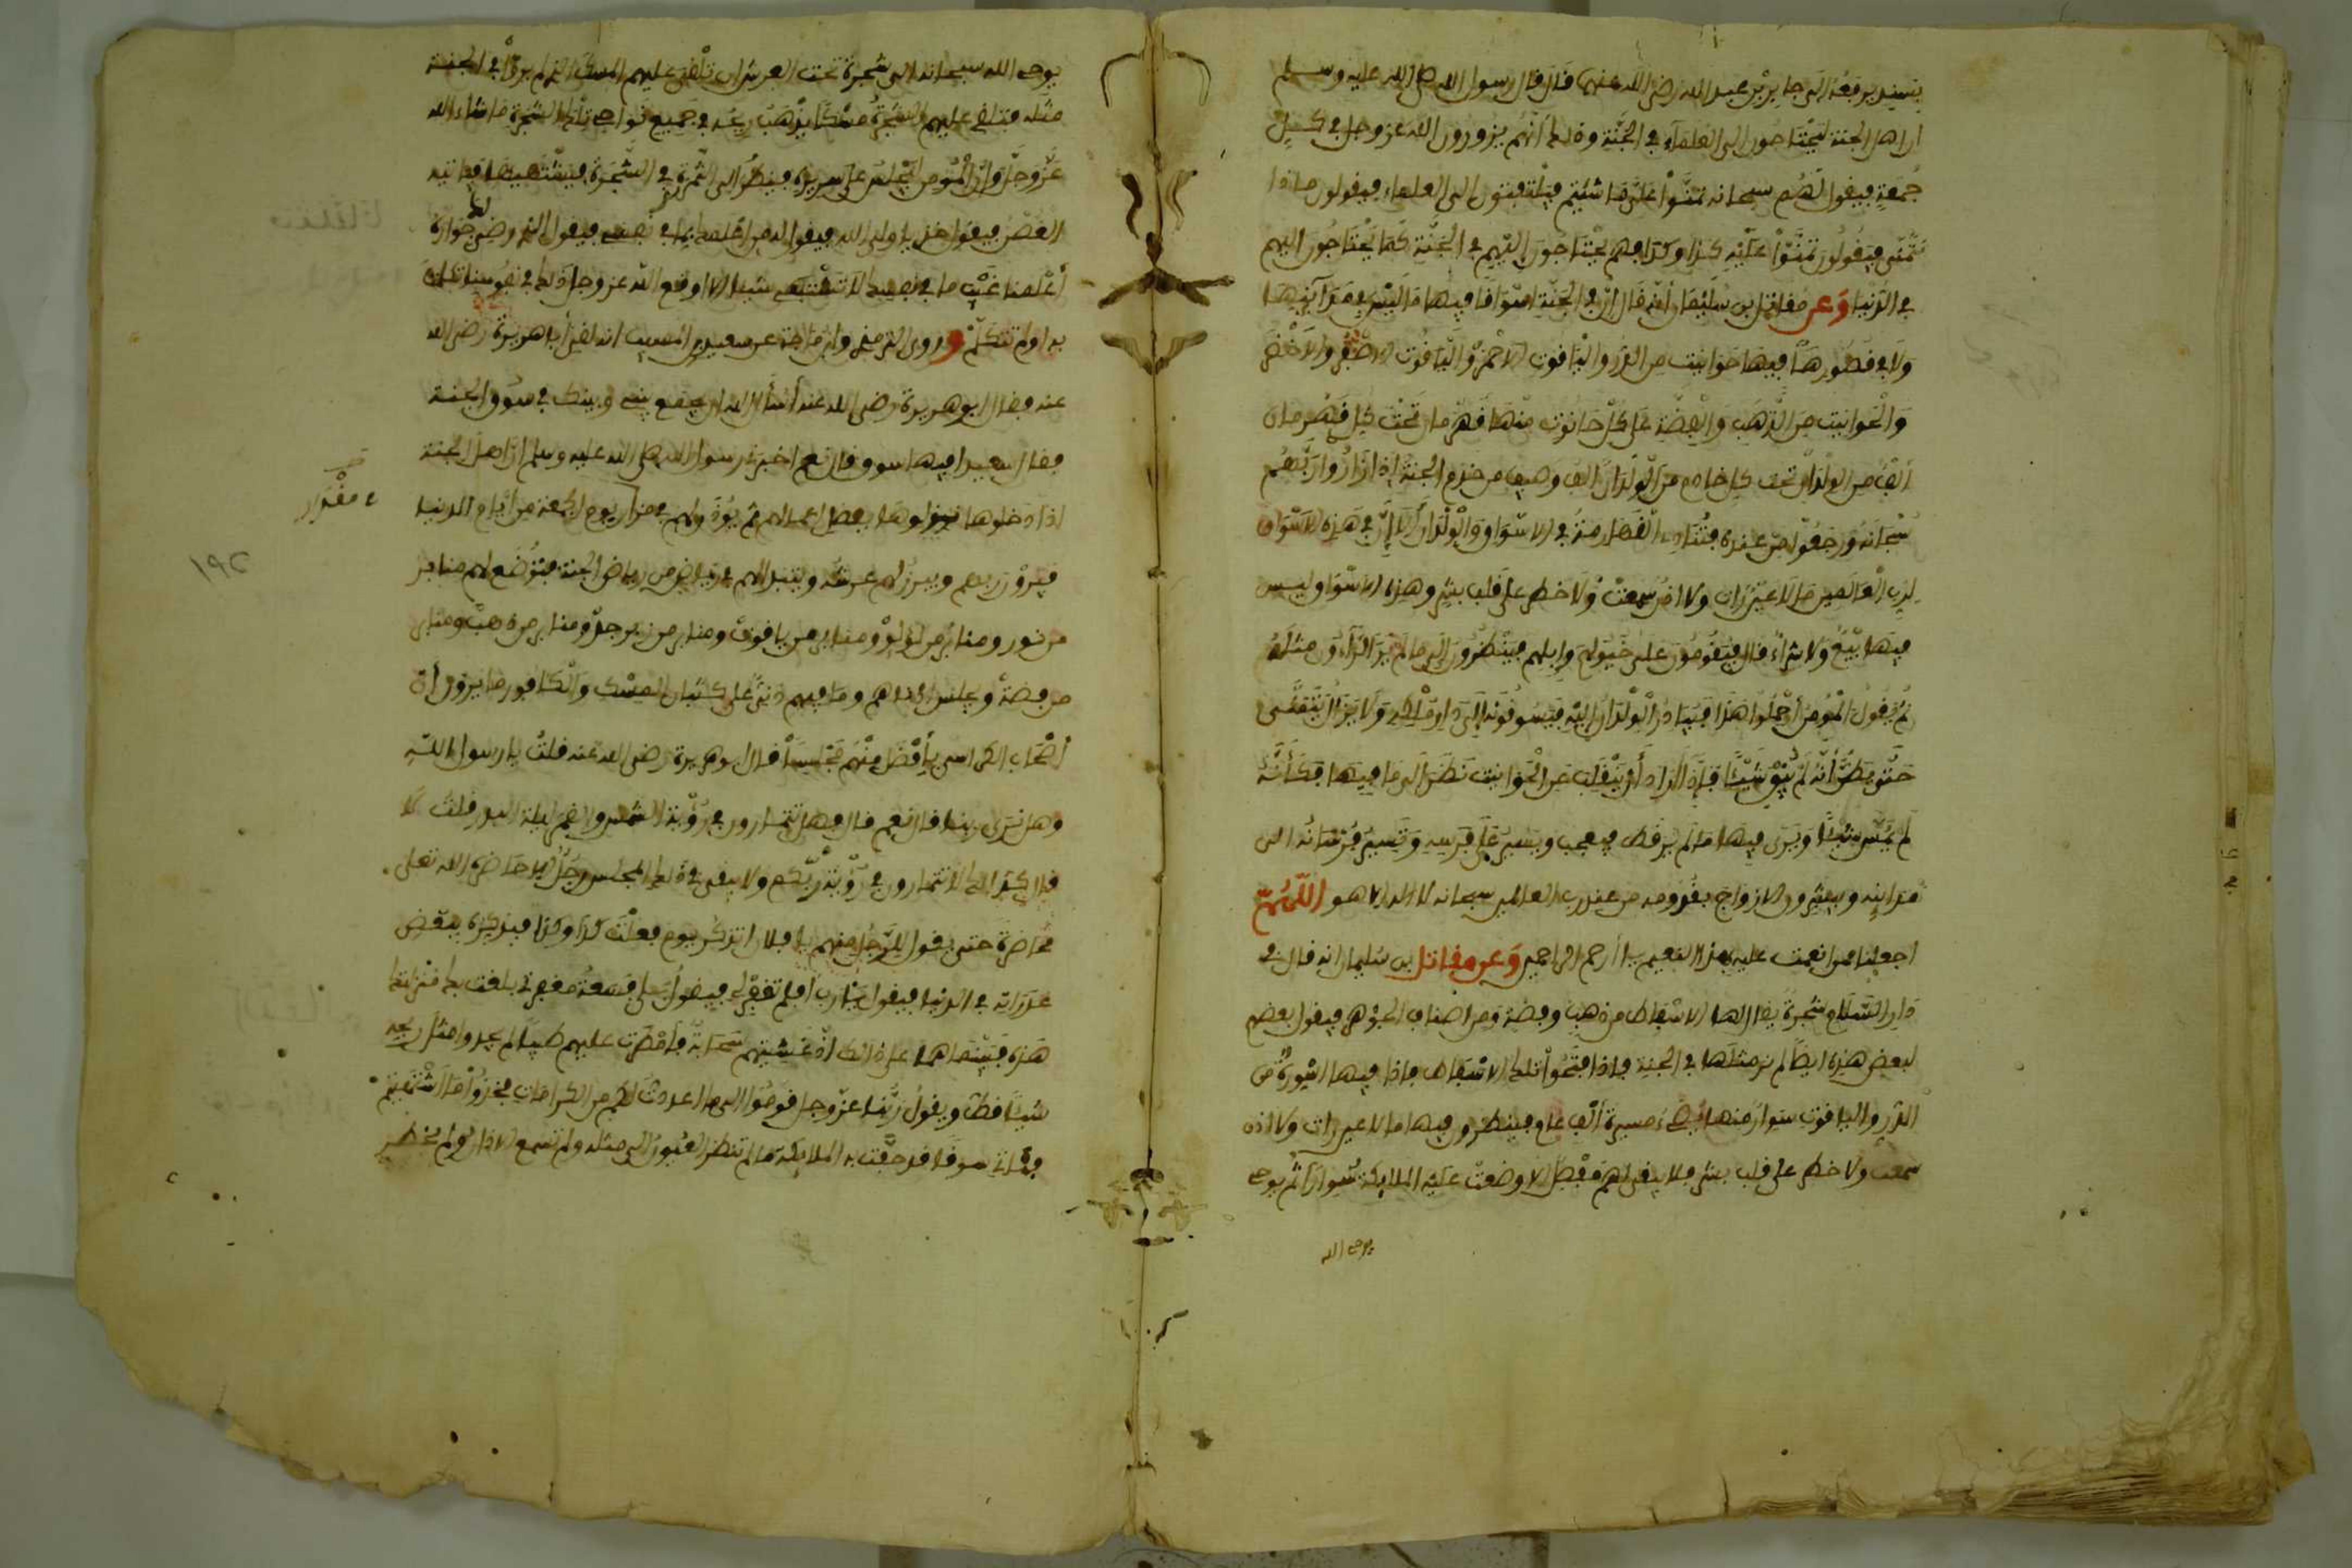 بسند يرفعه الى جابر بن عبد الله رضي الله عنهما قال قال رسول الله صلى الله عليه وسلم
ان اهل الجنة ليحتاجون الى العلماء في الجنة وذلك أنهم يزورون الله عز وجل في كل
جمعة فيقول لهم سبحانه تمنوا علي ما شئتم فيلتفتون الى العلماء فيقولون ماذا
نتمنى فيقولون تمنوا عليه كذا وكذا فهم يحتاجون اليهم في الجنة كما يحتاجون اليهم
في الدنيا وعن مقاتل بن سليمان أنه قال إن في الجنة اسواقا فيها ما ليس في مدآئنها
ولا في قصورها فيها حوانيت من الدر والياقوت الاحمر والياقوت الاصفر والاخضر
والحوانيت من الذهب والفضة على كل حانوت منها قهرمان تحت كل قهرمان
ألف من الولدان تحت كل خادم من الولدان الف وصيف من خدم الجنة إذا زاروا ربهم
سبحانه ورجعوا من عنده فتناديه القهارمة في الاسواق والولدان ألا إن في هذه الاسواق
لرب العالمين ما لا عين رأت ولا اذن سمعت ولا خطر على قلب بشر وهذه الاسواق ليس
فيها بيع ولا شراء قال فيقومون على خيولهم وابلهم فينظرون إلى ما لم ير الرآءون مثله
ثم يقول المؤمن أحملوا هذا فيبادر الولدان اليه فيسوقونه إلى دار ملكه ولا يزال يتمشى
حتى يظن أنه لم يبق شيئا فإذا أراد أن ينقلب عن الحوانيت نظر الى ما فيها فكأنه
لم يمس شيئا ويرى فيها ما لم ير قط فيعجب ويسير على فرسه وتسير فرسانه الى
مدائنه ويبشرون الازواج بقدومه من عند رب العالمين سبحانه لا اله الا هو اللهم
اجعلنا ممن انعمت عليه بهذا النعيم يا أرحم الراحمين وعن مقاتل بن سليمان انه قال في
دار السلام شجرة يقال لها الاسفاط من ذهب وفضة ومن اصناف الجوهر فيقول بعضهم
لبعض هذه ايضا لم نر مثلها في الجنة فاذا فتحوا تلك الاسفاط فاذا فيها اسورة من
الدر والياقوت سوار منها يضيء مسيرة ألف عام فينظرون فيها ما لا عين رأت ولا اذن
سمعت ولا خطر على قلب بشر فلا يبقى لهم مفصل الا وضعت عليه الملايكة سوارا ثم يوحي
يوحى الله
يوحى الله سبحانه الى شجرة تحت العرش ان تلقي عليهم المسك الذي لم يروا في الجنة
مثله فتلقي عليهم الشجرة مسكا يذهب ريحه في جميع نواحي تلك الشجرة ما شاء الله
عز وجل وإن المؤمن ليجلس على سريره فينظر الى الثمرة في الشجرة فيشتهيها فيأتيه
الغصن فيقول خذ يا ولي الله فيقول له من اعلمك بما في نفسي فيقول الذي رضي لك جواره
أعلمنا غيب ما في نفسك لا تشتهي شيئا الا اوقع الله عز وجل ذلك في نفوسنا تكلمت
به او لم تتكلم وروى الترمذي وابن ماجة عن سعيد بن المسيب انه لقي أبا هريرة رضي الله
عنه فقال ابو هريرة رضي الله عنه أسأل الله ان يجمع بيني وبينك في سوق الجنة
فقال سعيد افيها سوق قال نعم اخبرني رسول الله صلى الله عليه وسلم أن اهل الجنة
اذا دخلوها نزلوها بفضل اعمالهم ثم يؤذن لهم في مقدار يوم الجمعة من أيام الدنيا
مقدار
فيزورون ربهم ويبرز لهم عرشه ويتبدى لهم في روضة من رياض الجنة فتوضع لهم منابر
١٩٢
من نور ومنابر من لؤلؤ ومنابر من ياقوت ومنابر من زبرجد ومنابر من ذهب ومنابر
من فضة ويجلس ادناهم وما فيهم دني على كثبان المسك والكافور ما يرون أن
أصحاب الكراسي بأفضل منهم مجلسا قال ابو هريرة رضي الله عنه قلت يا رسول الله
وهل نرى ربنا قال نعم قال فهل تتمارون في رؤية الشمس والقمر ليلة البدر قلت لا
قال كذلك لا تتمارون في رؤية ربكم ولا يبقى في ذلك المجلس رجل الا حاضره الله تعلى
محاضرة حتى يقول للرجل منهم يا فلان اتذكر يوم فعلت كذا وكذا فيذكره ببعض
غدراته في الدنيا فيقول يا رب أفلم تغفر لي فيقول بلى فبسعة مغفرتي بلغت بك منزلتك
هذه فبينما هم على ذلك اذ غشيتهم سحابة فأمطرت عليهم طيبا لم يجدوا مثل ريحه
شيئا قط ويقول ربنا عز وجل قوموا الى ما اعددت لكم من الكرامات فخذوا ما اشتهيتم
فنأتي سوقا قد حفت به الملايكة ما لم تنظر العيون الى مثله ولم تسمع الاذان ولم يخطر